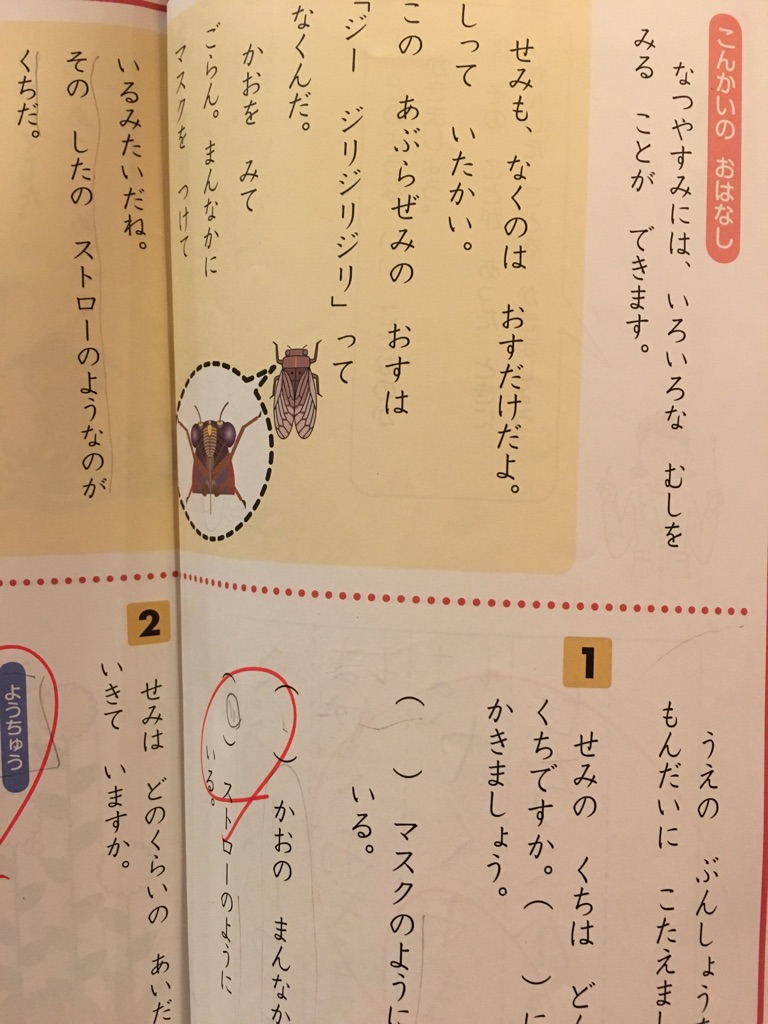 こんかいの おはなし
なつやすみには、いろいろな むしを
みる ことが できます。
せみも、なくのは おすだけだよ。
しって いたかい。
この あぶらぜみの おすは
「ジー ジリジリジリ」って
なくんだ。
かおを みて
ごらん。まんなかに
マスクを つけて
いるみたいだね。
その したの ストローのようなのが
くちだ。
うえの ぶんしょう
もんだいに こたえまし
1
せみの くちは ど
くちですか。( )に
かきましょう。
( ) マスクのように
いる。
( ) かおの まんなか
(○) ストローのように
いる。
2
せみは どのくらいの あいだ
いきて いますか。
ようちゅう